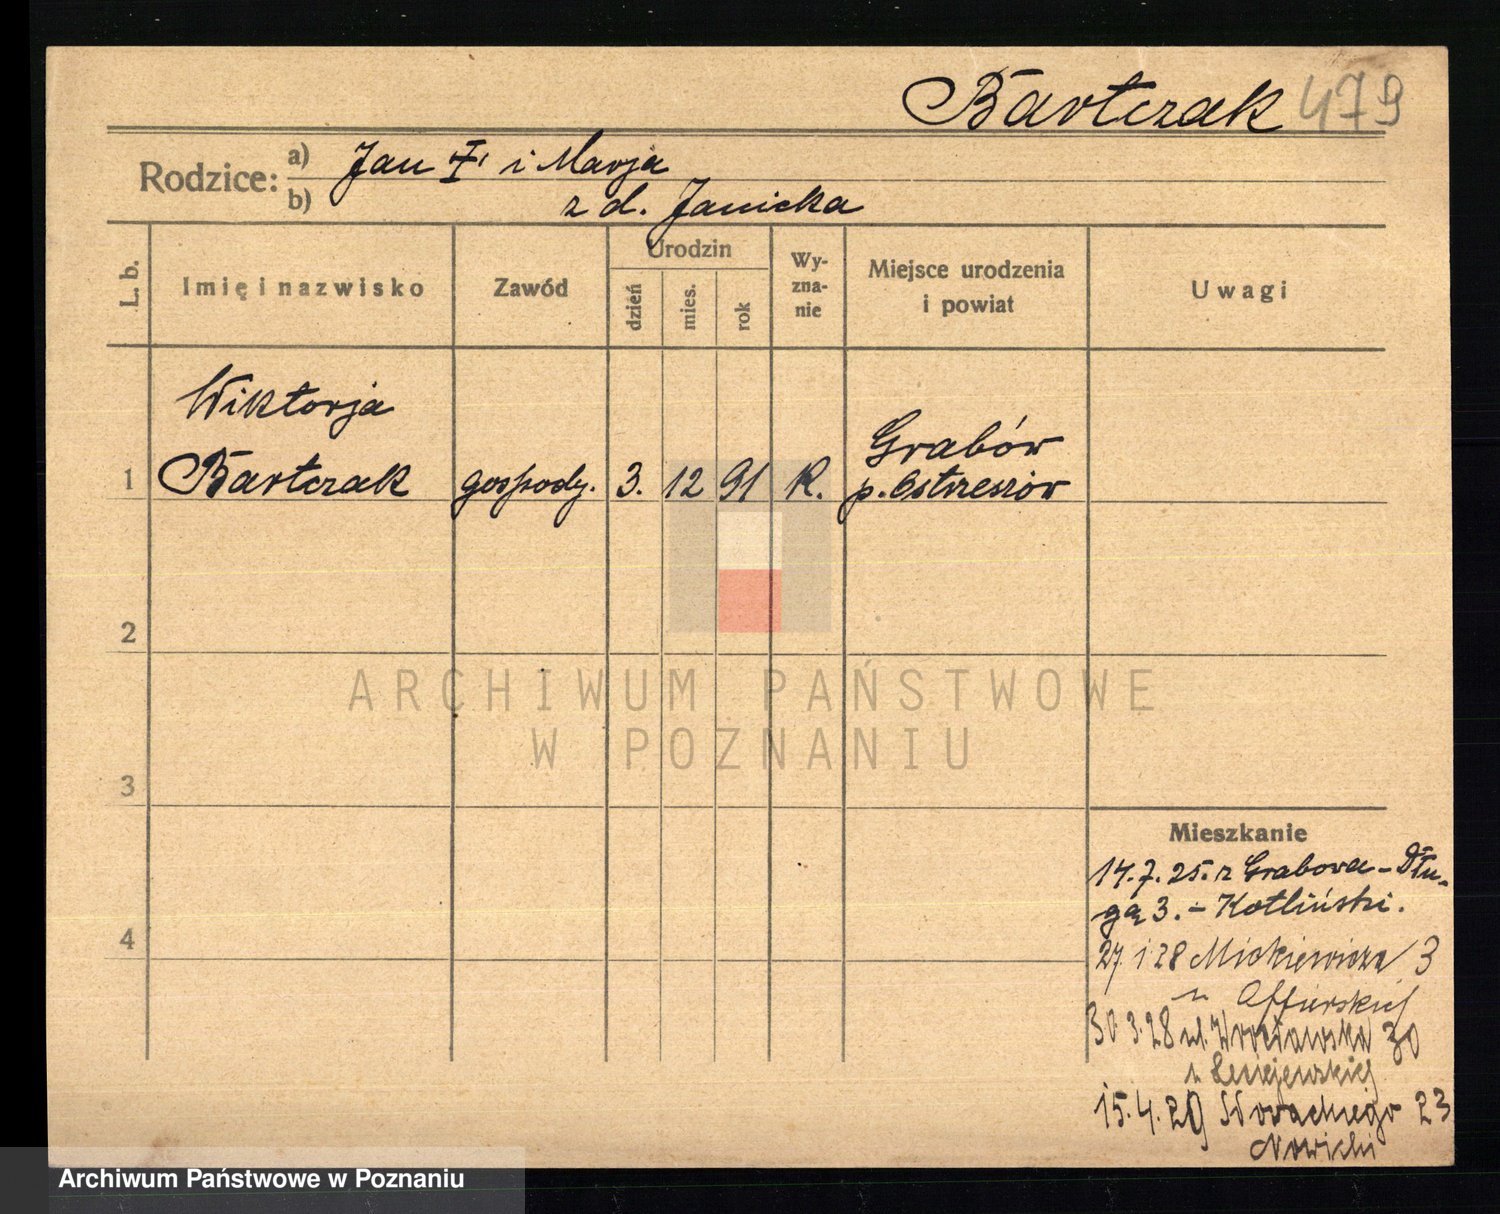 Bartczak 479
Rodzice: a) Jan i Marja
b) z d. Janicka
L. b.
Imię i nazwisko
Zawód
Urodzin
dzień
mies.
rok
Wy-
zna-
nie
Miejsce urodzenia
i powiat
Uwagi
Wiktorja
1 Bartczak gospody. 3. 12 91 K. Grabów
p. Ostrzeszów
2
ARCHIWUM PAŃSTWOWE
W POZNANIU
3
Mieszkanie
14.7.25. z Grabowa - Dłu-
gą 3. - Kotliński.
4
27. 1 28 Mickiewicza 3
u
30.3.28 ul. Wrocławska 30
u
15.4.29 Słowackiego 23
Nowicki
Archiwum Państwowe w Poznaniu